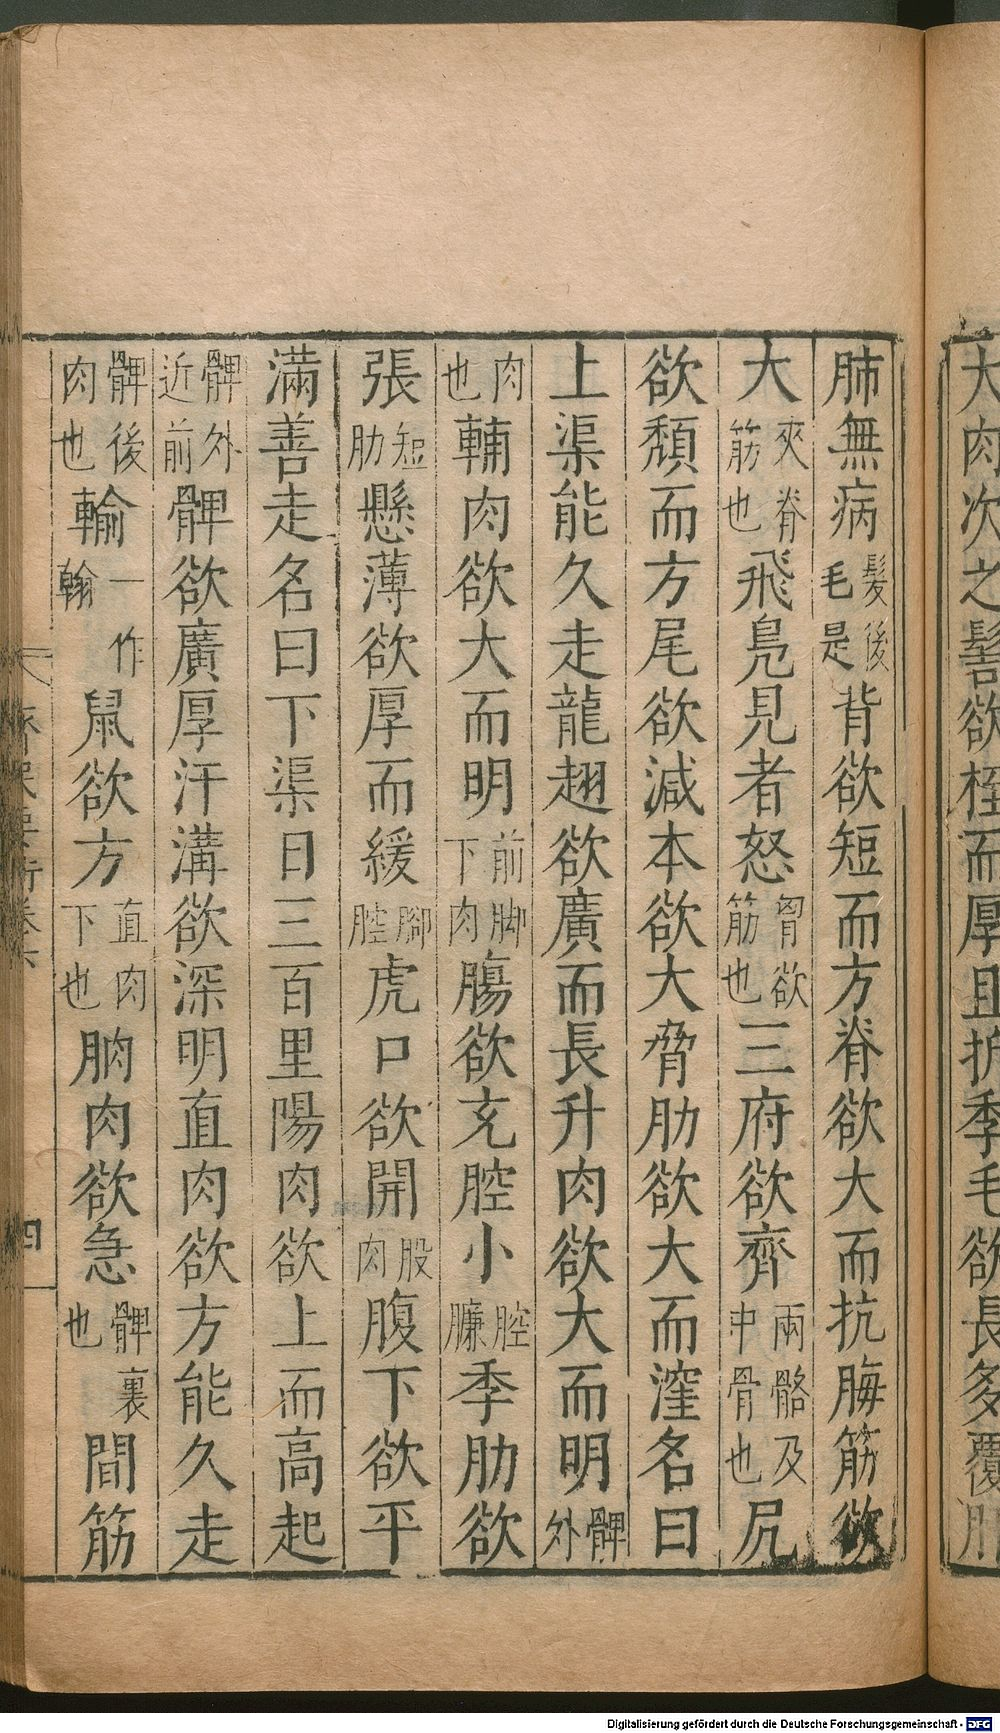 大肉次之髻欲桎而厚且折季毛欲長多覆肝
肺無病髮後毛是背欲短而方脊欲大而抗脢筋欲
大夾脊筋也飛鳧見者怒胷欲筋也三府欲齊兩髂及中骨也尻
欲頹而方尾欲減本欲大脅肋欲大而漥名曰
上渠能久走龍翅欲廣而長升肉欲大而明髀外
肉也輔肉欲大而明前脚下肉腸欲充腔小腔臁季肋欲
張短肋懸薄欲厚而緩脚腔虎口欲開股肉腹下欲平
滿善走名曰下渠日三百里陽肉欲上而高起
髀外近前髀欲廣厚汗溝欲深明直肉欲方能久走
髀後肉也輸一作翰鼠欲方直肉下也朒肉欲急髀裏也間筋
齊民要術卷六 四
Digitalisierung gefördert durch die Deutsche Forschungsgemeinschaft - DFG